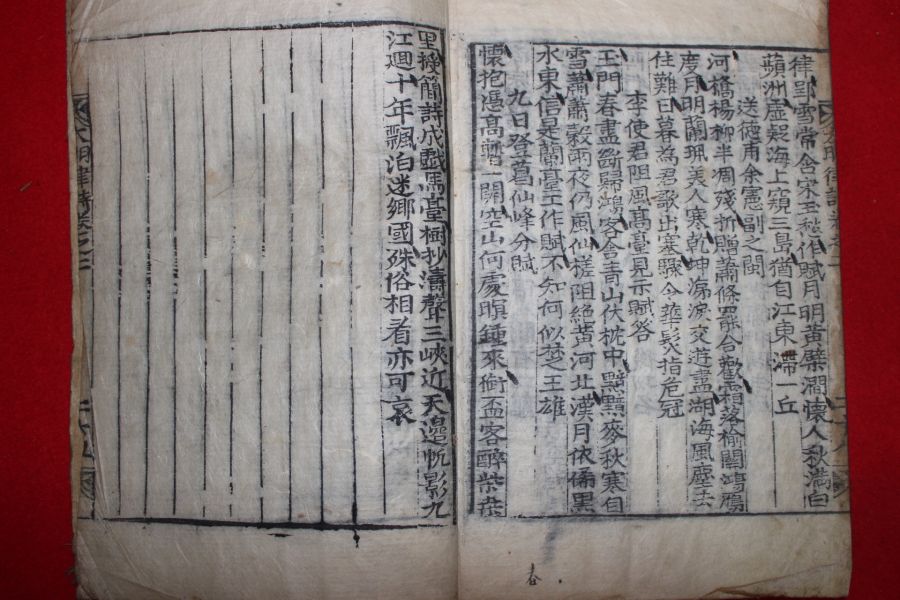 律雪常含宋玉愁作賦月明黃蘗澗懷人秋滿白
蘋洲虛疑海上窺三島猶自江東滯一丘
送德甫余憲副之閩
河橋楊柳半凋殘折贈蕭條罷合歡霜落榆關鴻鴈
度月明蘭珮美人寒乾坤涕淚交遊盡湖海風塵去
往難日暮為君歌出塞驟令華髮指危冠
李使君阻風高臺見示賦答
玉門春盡斷歸鴻客舍青山伏枕中黯黯麥秋寒自
雪蕭蕭穀雨夜仍風仙槎阻絕黃河北漢月依俙黑
水東信是蘭臺工作賦不知何似楚王雄
九日登葛仙峰分賦
懷抱憑高暫一開空山何處暝鍾來銜盃客醉紫萸
里授簡詩成戲馬臺樹抄濤聲三峽近天邊帆影九
江廻十年飄泊迷鄉國殊俗相看亦可哀
明律詩卷之二
二十九
春